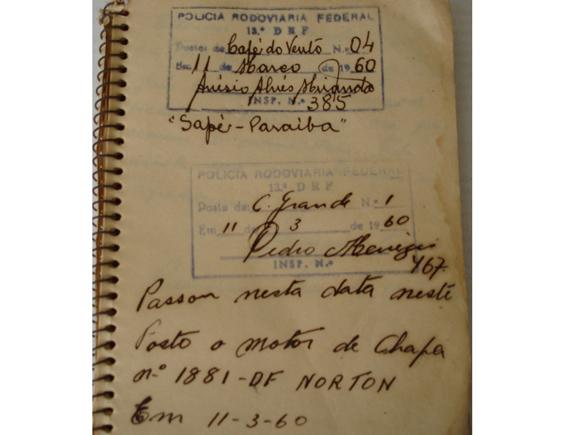 POLICIA RODOVIARIA FEDERAL
13.º D R F
Posto de Café do Vento N.º 04
Em 11 de Março de 1960
Anésio Alves Miranda
INSP. N.º 385
"Sapé - Paraiba"
POLICIA RODOVIARIA FEDERAL
13.º D R F
Posto de C. Grande N.º 1
Em 11 3 de 1960
Pedro
INSP. N.º 467
Passou nesta data neste
Posto o motor de Chapa
nº 1881 - DF NORTON
Em 11-3-60